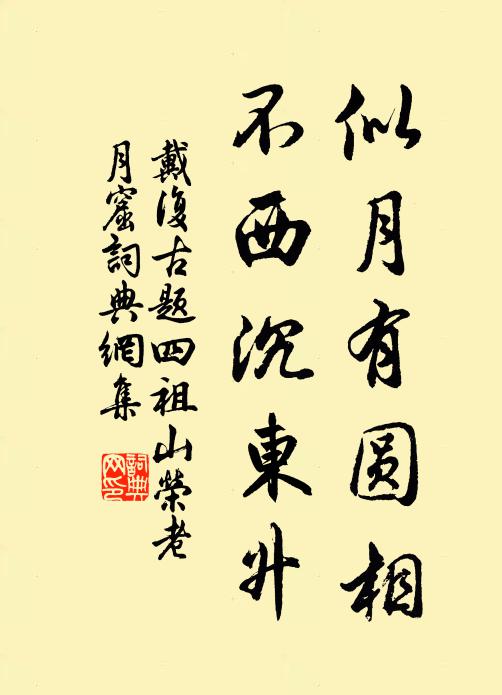 似月有圆相
不西沉東升
戴復古題四祖山榮老
月窟詞典網集
詞典
网印